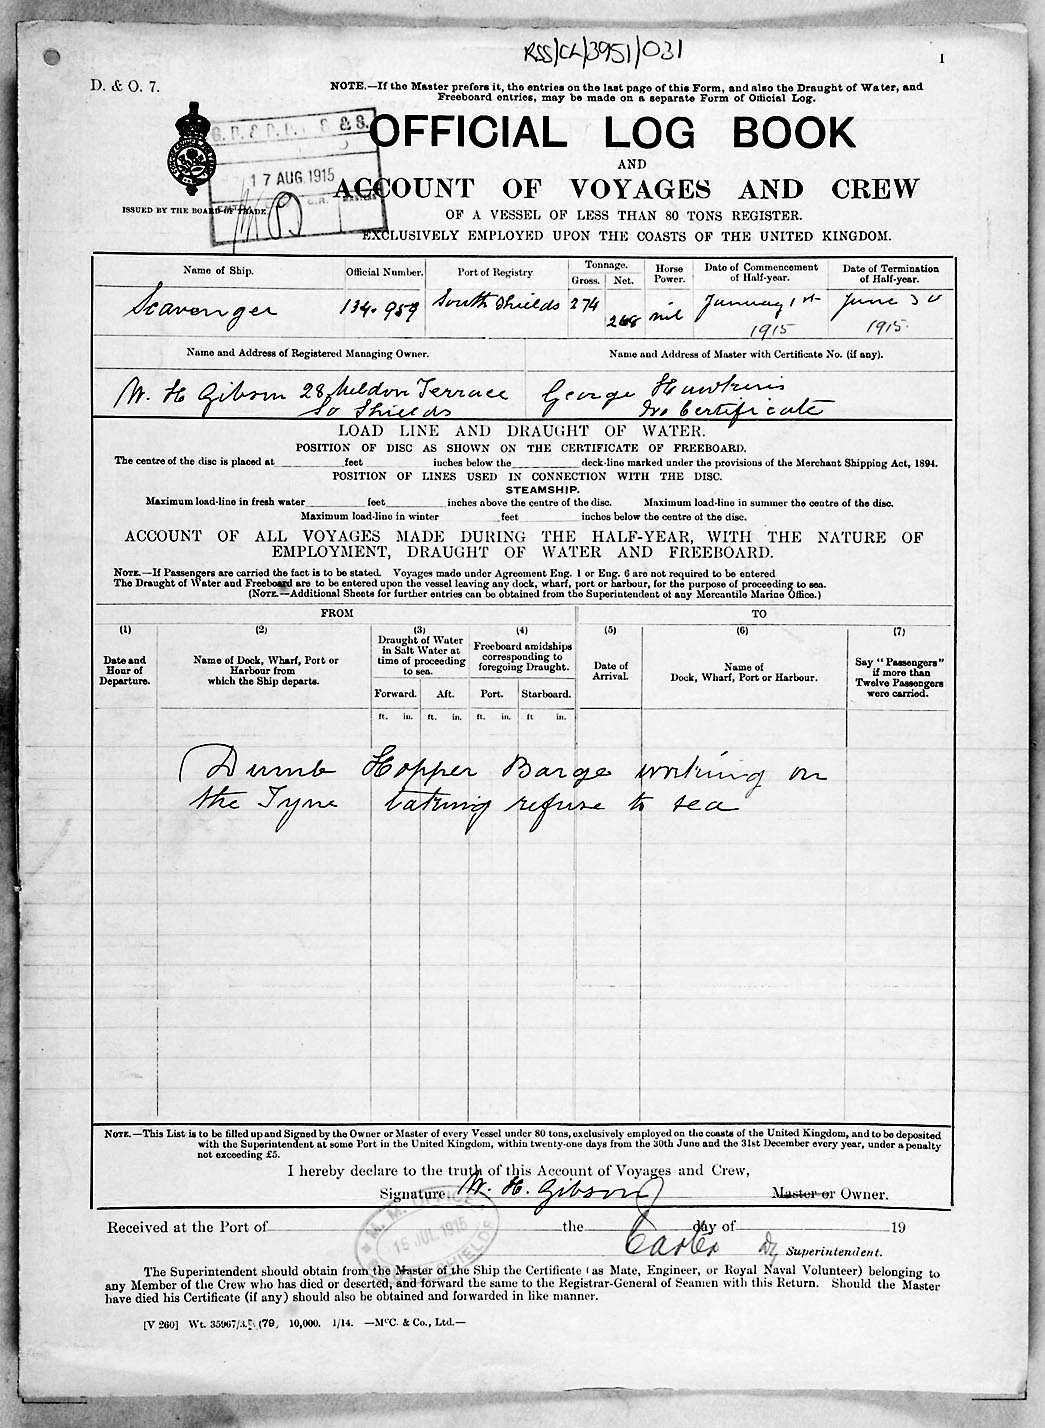 RSS/CL/3951/031
1
D. & O. 7.
NOTE.—If the Master prefers it, the entries on the last page of this Form, and also the Draught of Water, and
Freeboard entries, may be made on a separate Form of Official Log.
& S.
17 AUG. 1915
OFFICIAL LOG BOOK
AND
ACCOUNT OF VOYAGES AND CREW
ISSUED BY THE BOARD OF TRADE
OF A VESSEL OF LESS THAN 80 TONS REGISTER.
EXCLUSIVELY EMPLOYED UPON THE COASTS OF THE UNITED KINGDOM.
Name of Ship. Official Number. Port of Registry Tonnage. Gross. Net. Horse Power. Date of Commencement of Half-year. Date of Termination of Half-year.
Scavenger 134.959 South Shields 274 268 nil January 1st 1915 June 30 1915
Name and Address of Registered Managing Owner. Name and Address of Master with Certificate No. (if any).
W. H Gibson 28 Meldon Terrace George Hawkins
So Shields No Certificate
LOAD LINE AND DRAUGHT OF WATER.
POSITION OF DISC AS SHOWN ON THE CERTIFICATE OF FREEBOARD.
The centre of the disc is placed at feet inches below the deck-line marked under the provisions of the Merchant Shipping Act, 1894.
POSITION OF LINES USED IN CONNECTION WITH THE DISC.
STEAMSHIP.
Maximum load-line in fresh water feet inches above the centre of the disc. Maximum load-line in summer the centre of the disc.
Maximum load-line in winter feet inches below the centre of the disc.
ACCOUNT OF ALL VOYAGES MADE DURING THE HALF-YEAR, WITH THE NATURE OF
EMPLOYMENT, DRAUGHT OF WATER AND FREEBOARD.
NOTE.—If Passengers are carried the fact is to be stated. Voyages made under Agreement Eng. 1 or Eng. 6 are not required to be entered
The Draught of Water and Freeboard are to be entered upon the vessel leaving any dock, wharf, port or harbour, for the purpose of proceeding to sea.
(NOTE.—Additional Sheets for further entries can be obtained from the Superintendent of any Mercantile Marine Office.)
FROM TO
(1) (2) (3) (4) (5) (6) (7)
Date and
Hour of
Departure.
Name of Dock, Wharf, Port or
Harbour from
which the Ship departs.
Draught of Water
in Salt Water at
time of proceeding
to sea.
Freeboard amidships
corresponding to
foregoing Draught.
Date of
Arrival.
Name of
Dock, Wharf, Port or Harbour.
Say "Passengers"
if more than
Twelve Passengers
were carried.
Forward. Aft. Port. Starboard.
ft. in. ft. in. ft. in. ft in.
Dumb Hopper Barge working on
the Tyne taking refuse to sea
NOTE.—This List is to be filled up and Signed by the Owner or Master of every Vessel under 80 tons, exclusively employed on the coasts of the United Kingdom, and to be deposited
with the Superintendent at some Port in the United Kingdom, within twenty-one days from the 30th June and the 31st December every year, under a penalty
not exceeding £5.
I hereby declare to the truth of this Account of Voyages and Crew,
Signature W. H. Gibson Master or Owner.
M. M. OFFICE
15 JUL 1915
SHIELDS
Received at the Port of the day of 19
Carter Dy Superintendent.
The Superintendent should obtain from the Master of the Ship the Certificate (as Mate, Engineer, or Royal Naval Volunteer) belonging to
any Member of the Crew who has died or deserted, and forward the same to the Registrar-General of Seamen with this Return. Should the Master
have died his Certificate (if any) should also be obtained and forwarded in like manner.
[V 260] Wt. 35967/3 (79) 10,000. 1/14. —McC. & Co., Ltd.—